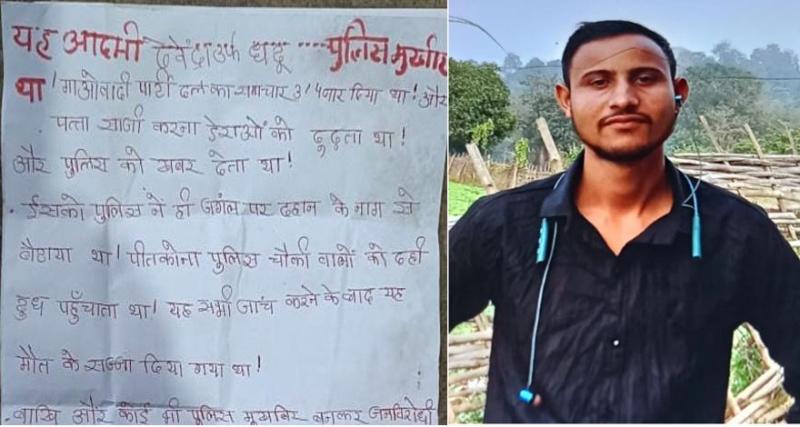 यह आदमी देवेंद्र उर्फ धदू .... पुलिस मुखबीर
था! माओवादी पार्टी दल का समाचार 3/4 बार दिया था! और
पत्ता सार्गी करना डेराओं को ढुढता था!
और पुलिस को खबर देता था!
. ईसको पुलिस नें ही जगंल पर दहान के नाम से
बैठाया था! पीतकोना पुलिस चौकी वालों को दही
दुध पहुँचाता था! यह सभी जाचं करने के बाद यह
मौत के सज्जा दिया गया था!
. बाखि और कोई भी पुलिस मूखबिर बनकर जनविरोधी